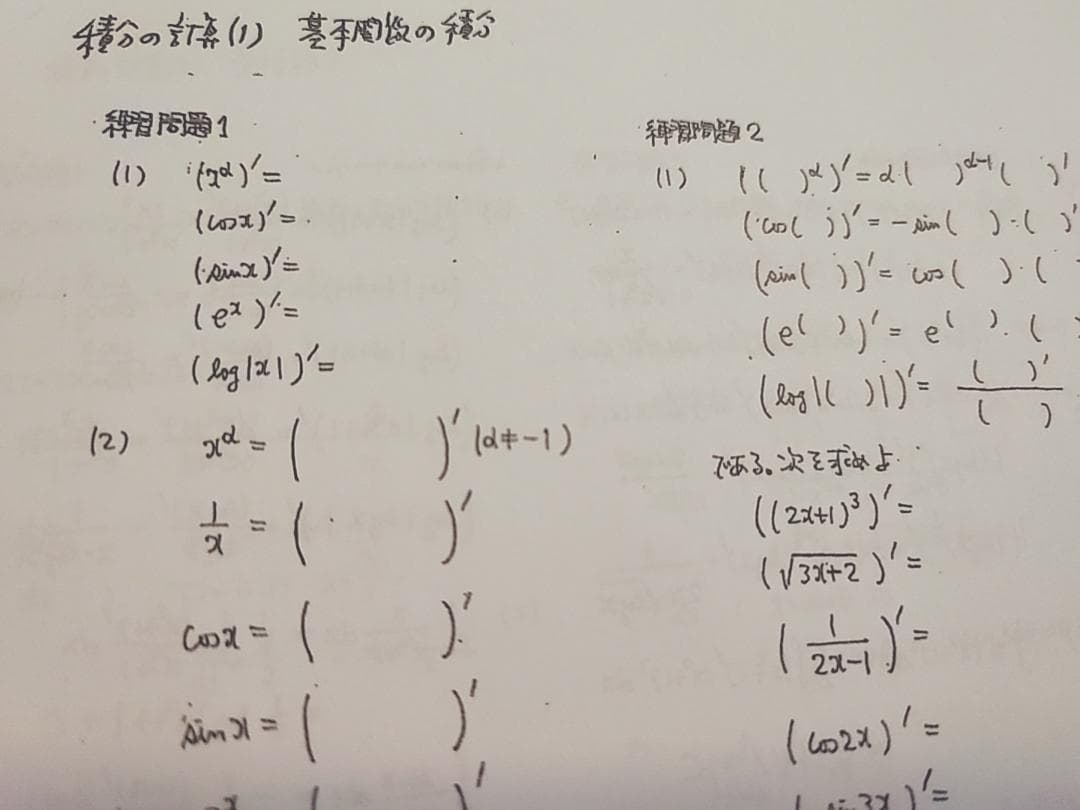 積分の計算(1) 基本関数の積分
練習問題1
(1) (x^α)' =
(cosx)' =
(sinx)' =
(e^x)' =
(log|x|)' =
(2) x^α = ( )' (α≠-1)
1/x = ( )'
cosx = ( )'
sinx = ( )'
( )'
練習問題2
(1) (( )^α)' = α・( )^(α-1) ( )'
(cos( ))' = -sin( )・( )'
(sin( ))' = cos( )・(
(e^( ))' = e^( )・(
(log|( )|)' = ( )'/( )
である。次を求めよ
((2x+1)^3)' =
(√(3x+2))' =
(1/(2x-1))' =
(cos2x)' =
(sin3x)' =